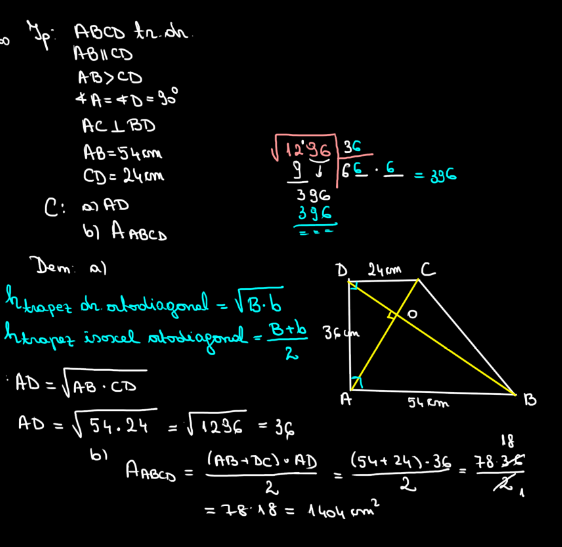 Ip: ABCD tr. dr.
AB||CD
AB>CD
∢A=∢D=90°
AC⊥BD
AB=54cm
CD=24cm
C: a) AD
b) A ABCD
√1296 | 36
9 ↓ 66 · 6 = 396
396
396
===
Dem: a)
h trapez dr. ortodiagonal = √B·b
h trapez isoscel ortodiagonal = B+b / 2
D 24cm C
O
36cm
A 54cm B
AD = √AB·CD
AD = √54·24 = √1296 = 36
b) A ABCD = (AB+DC)·AD / 2 = (54+24)·36 / 2 = 78·36 / 2
18
1
= 78·18 = 1404 cm²